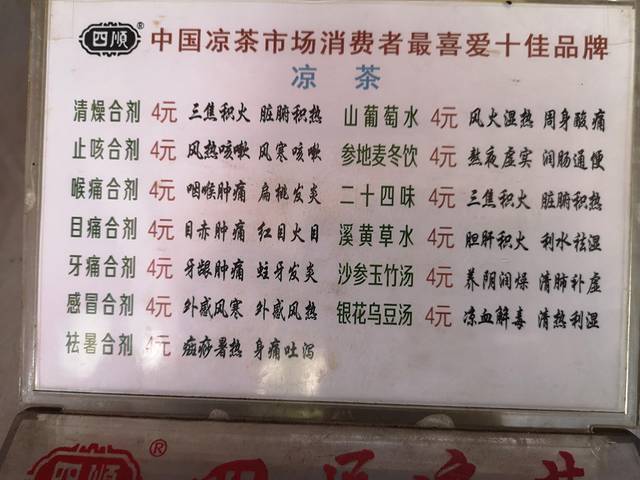 四順® 中国凉茶市场消费者最喜爱十佳品牌
凉 茶
清燥合剂 4元 三焦积火 脏腑积热
止咳合剂 4元 风热咳嗽 风寒咳嗽
喉痛合剂 4元 咽喉肿痛 扁桃发炎
目痛合剂 4元 目赤肿痛 红目火目
牙痛合剂 4元 牙龈肿痛 蛀牙发炎
感冒合剂 4元 外感风寒 外感风热
祛暑合剂 4元 痧暑热 身痛吐泻
山葡萄水 4元 风火湿热 周身酸痛
参地麦冬饮 4元 熬夜虚实 润肠通便
二十四味 4元 三焦积火 脏腑积热
溪黄草水 4元 胆肝积火 利水祛湿
沙参玉竹汤 4元 养阴润燥 清肺补虚
银花乌豆汤 4元 凉血解毒 清热利湿
四順®